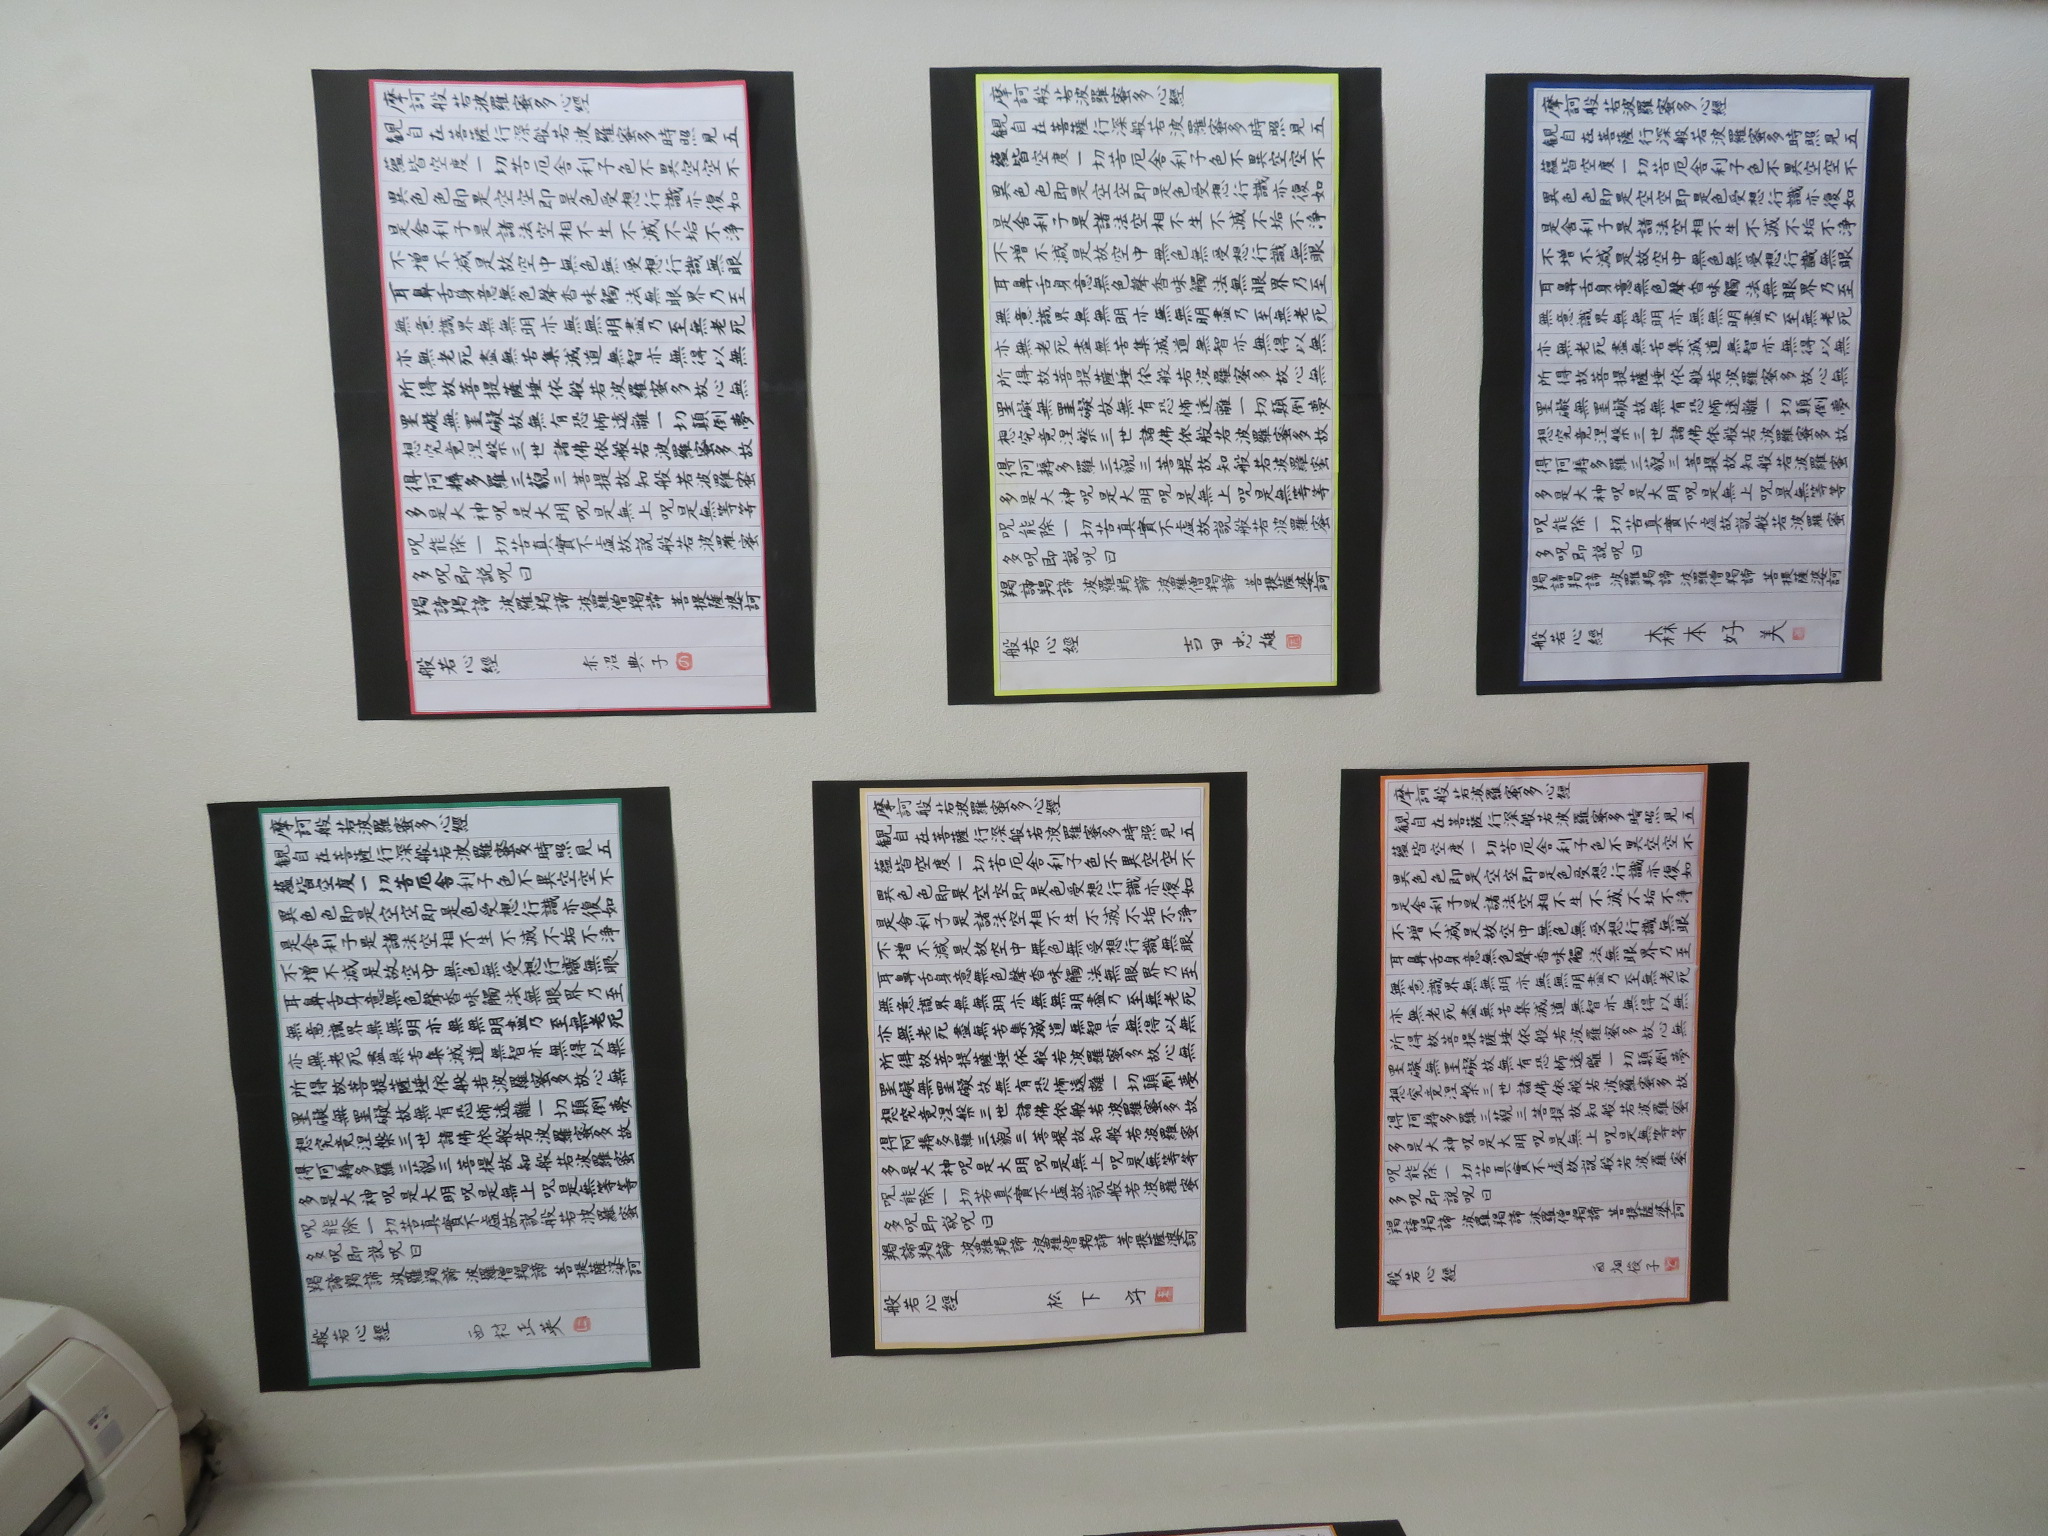 摩訶般若波羅蜜多心經
観自在菩薩行深般若波羅蜜多時照見五
蘊皆空度一切苦厄舎利子色不異空空不
異色色即是空空即是色受想行識亦復如
是舎利子是諸法空相不生不滅不垢不浄
不増不減是故空中無色無受想行識無眼
耳鼻舌身意無色聲香味觸法無眼界乃至
無意識界無無明亦無無明盡乃至無老死
亦無老死盡無苦集滅道無智亦無得以無
所得故菩提薩埵依般若波羅蜜多故心無
罣礙無罣礙故無有恐怖遠離一切顛倒夢
想究竟涅槃三世諸佛依般若波羅蜜多故
得阿耨多羅三藐三菩提故知般若波羅蜜
多是大神呪是大明呪是無上呪是無等等
呪能除一切苦真實不虚故説般若波羅蜜
多呪即説呪曰
羯諦羯諦 波羅羯諦 波羅僧羯諦 菩提薩婆訶
般若心經 赤沼典子
摩訶般若波羅蜜多心經
観自在菩薩行深般若波羅蜜多時照見五
蘊皆空度一切苦厄舎利子色不異空空不
異色色即是空空即是色受想行識亦復如
是舎利子是諸法空相不生不滅不垢不浄
不増不減是故空中無色無受想行識無眼
耳鼻舌身意無色聲香味觸法無眼界乃至
無意識界無無明亦無無明盡乃至無老死
亦無老死盡無苦集滅道無智亦無得以無
所得故菩提薩埵依般若波羅蜜多故心無
罣礙無罣礙故無有恐怖遠離一切顛倒夢
想究竟涅槃三世諸佛依般若波羅蜜多故
得阿耨多羅三藐三菩提故知般若波羅蜜
多是大神呪是大明呪是無上呪是無等等
呪能除一切苦真實不虚故説般若波羅蜜
多呪即説呪曰
羯諦羯諦 波羅羯諦 波羅僧羯諦 菩提薩婆訶
般若心經 西村正英
摩訶般若波羅蜜多心經
観自在菩薩行深般若波羅蜜多時照見五
蘊皆空度一切苦厄舎利子色不異空空不
異色色即是空空即是色受想行識亦復如
是舎利子是諸法空相不生不滅不垢不浄
不増不減是故空中無色無受想行識無眼
耳鼻舌身意無色聲香味觸法無眼界乃至
無意識界無無明亦無無明盡乃至無老死
亦無老死盡無苦集滅道無智亦無得以無
所得故菩提薩埵依般若波羅蜜多故心無
罣礙無罣礙故無有恐怖遠離一切顛倒夢
想究竟涅槃三世諸佛依般若波羅蜜多故
得阿耨多羅三藐三菩提故知般若波羅蜜
多是大神呪是大明呪是無上呪是無等等
呪能除一切苦真實不虚故説般若波羅蜜
多呪即説呪曰
羯諦羯諦 波羅羯諦 波羅僧羯諦 菩提薩婆訶
般若心經 吉田忠雄
摩訶般若波羅蜜多心經
観自在菩薩行深般若波羅蜜多時照見五
蘊皆空度一切苦厄舎利子色不異空空不
異色色即是空空即是色受想行識亦復如
是舎利子是諸法空相不生不滅不垢不浄
不増不減是故空中無色無受想行識無眼
耳鼻舌身意無色聲香味觸法無眼界乃至
無意識界無無明亦無無明盡乃至無老死
亦無老死盡無苦集滅道無智亦無得以無
所得故菩提薩埵依般若波羅蜜多故心無
罣礙無罣礙故無有恐怖遠離一切顛倒夢
想究竟涅槃三世諸佛依般若波羅蜜多故
得阿耨多羅三藐三菩提故知般若波羅蜜
多是大神呪是大明呪是無上呪是無等等
呪能除一切苦真實不虚故説般若波羅蜜
多呪即説呪曰
羯諦羯諦 波羅羯諦 波羅僧羯諦 菩提薩婆訶
般若心經 松下
摩訶般若波羅蜜多心經
観自在菩薩行深般若波羅蜜多時照見五
蘊皆空度一切苦厄舎利子色不異空空不
異色色即是空空即是色受想行識亦復如
是舎利子是諸法空相不生不滅不垢不浄
不増不減是故空中無色無受想行識無眼
耳鼻舌身意無色聲香味觸法無眼界乃至
無意識界無無明亦無無明盡乃至無老死
亦無老死盡無苦集滅道無智亦無得以無
所得故菩提薩埵依般若波羅蜜多故心無
罣礙無罣礙故無有恐怖遠離一切顛倒夢
想究竟涅槃三世諸佛依般若波羅蜜多故
得阿耨多羅三藐三菩提故知般若波羅蜜
多是大神呪是大明呪是無上呪是無等等
呪能除一切苦真實不虚故説般若波羅蜜
多呪即説呪曰
羯諦羯諦 波羅羯諦 波羅僧羯諦 菩提薩婆訶
般若心經 森本好美
摩訶般若波羅蜜多心經
観自在菩薩行深般若波羅蜜多時照見五
蘊皆空度一切苦厄舎利子色不異空空不
異色色即是空空即是色受想行識亦復如
是舎利子是諸法空相不生不滅不垢不浄
不増不減是故空中無色無受想行識無眼
耳鼻舌身意無色聲香味觸法無眼界乃至
無意識界無無明亦無無明盡乃至無老死
亦無老死盡無苦集滅道無智亦無得以無
所得故菩提薩埵依般若波羅蜜多故心無
罣礙無罣礙故無有恐怖遠離一切顛倒夢
想究竟涅槃三世諸佛依般若波羅蜜多故
得阿耨多羅三藐三菩提故知般若波羅蜜
多是大神呪是大明呪是無上呪是無等等
呪能除一切苦真實不虚故説般若波羅蜜
多呪即説呪曰
羯諦羯諦 波羅羯諦 波羅僧羯諦 菩提薩婆訶
般若心經 西畑俊子